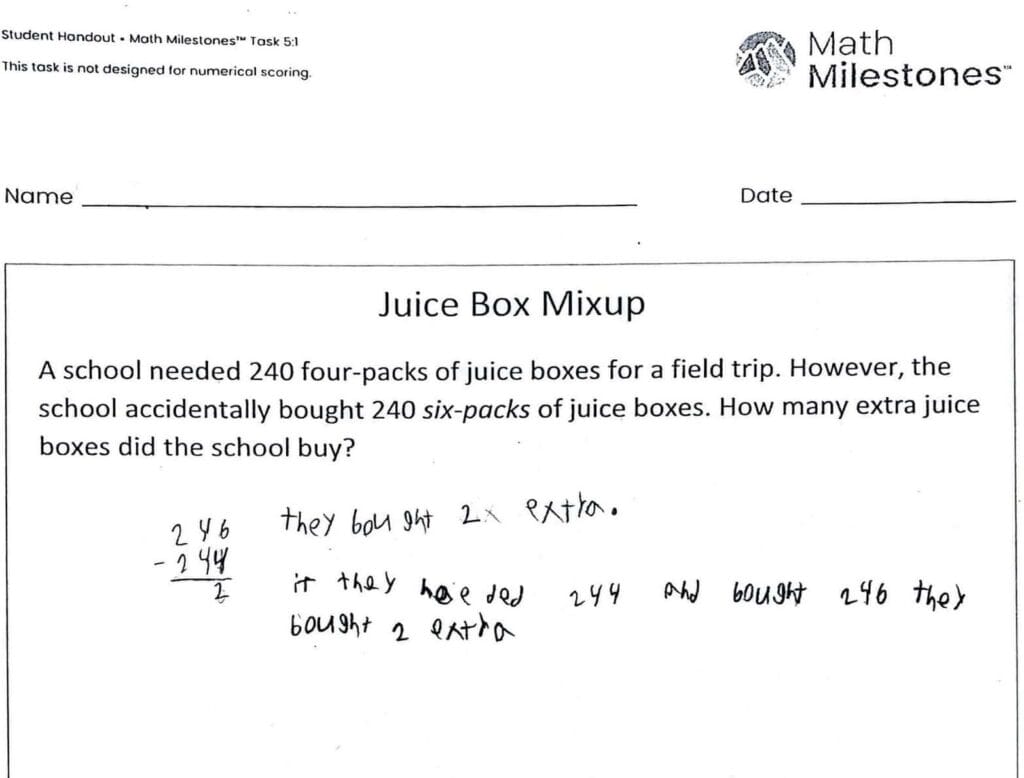 Student Handout • Math Milestones™ Task 5:1
This task is not designed for numerical scoring.
Math
Milestones™
Name
Date
Juice Box Mixup
A school needed 240 four-packs of juice boxes for a field trip. However, the
school accidentally bought 240 six-packs of juice boxes. How many extra juice
boxes did the school buy?
246
- 244
2
they bought 2x extra.
if they needed 244 and bought 246 they
bought 2 extra